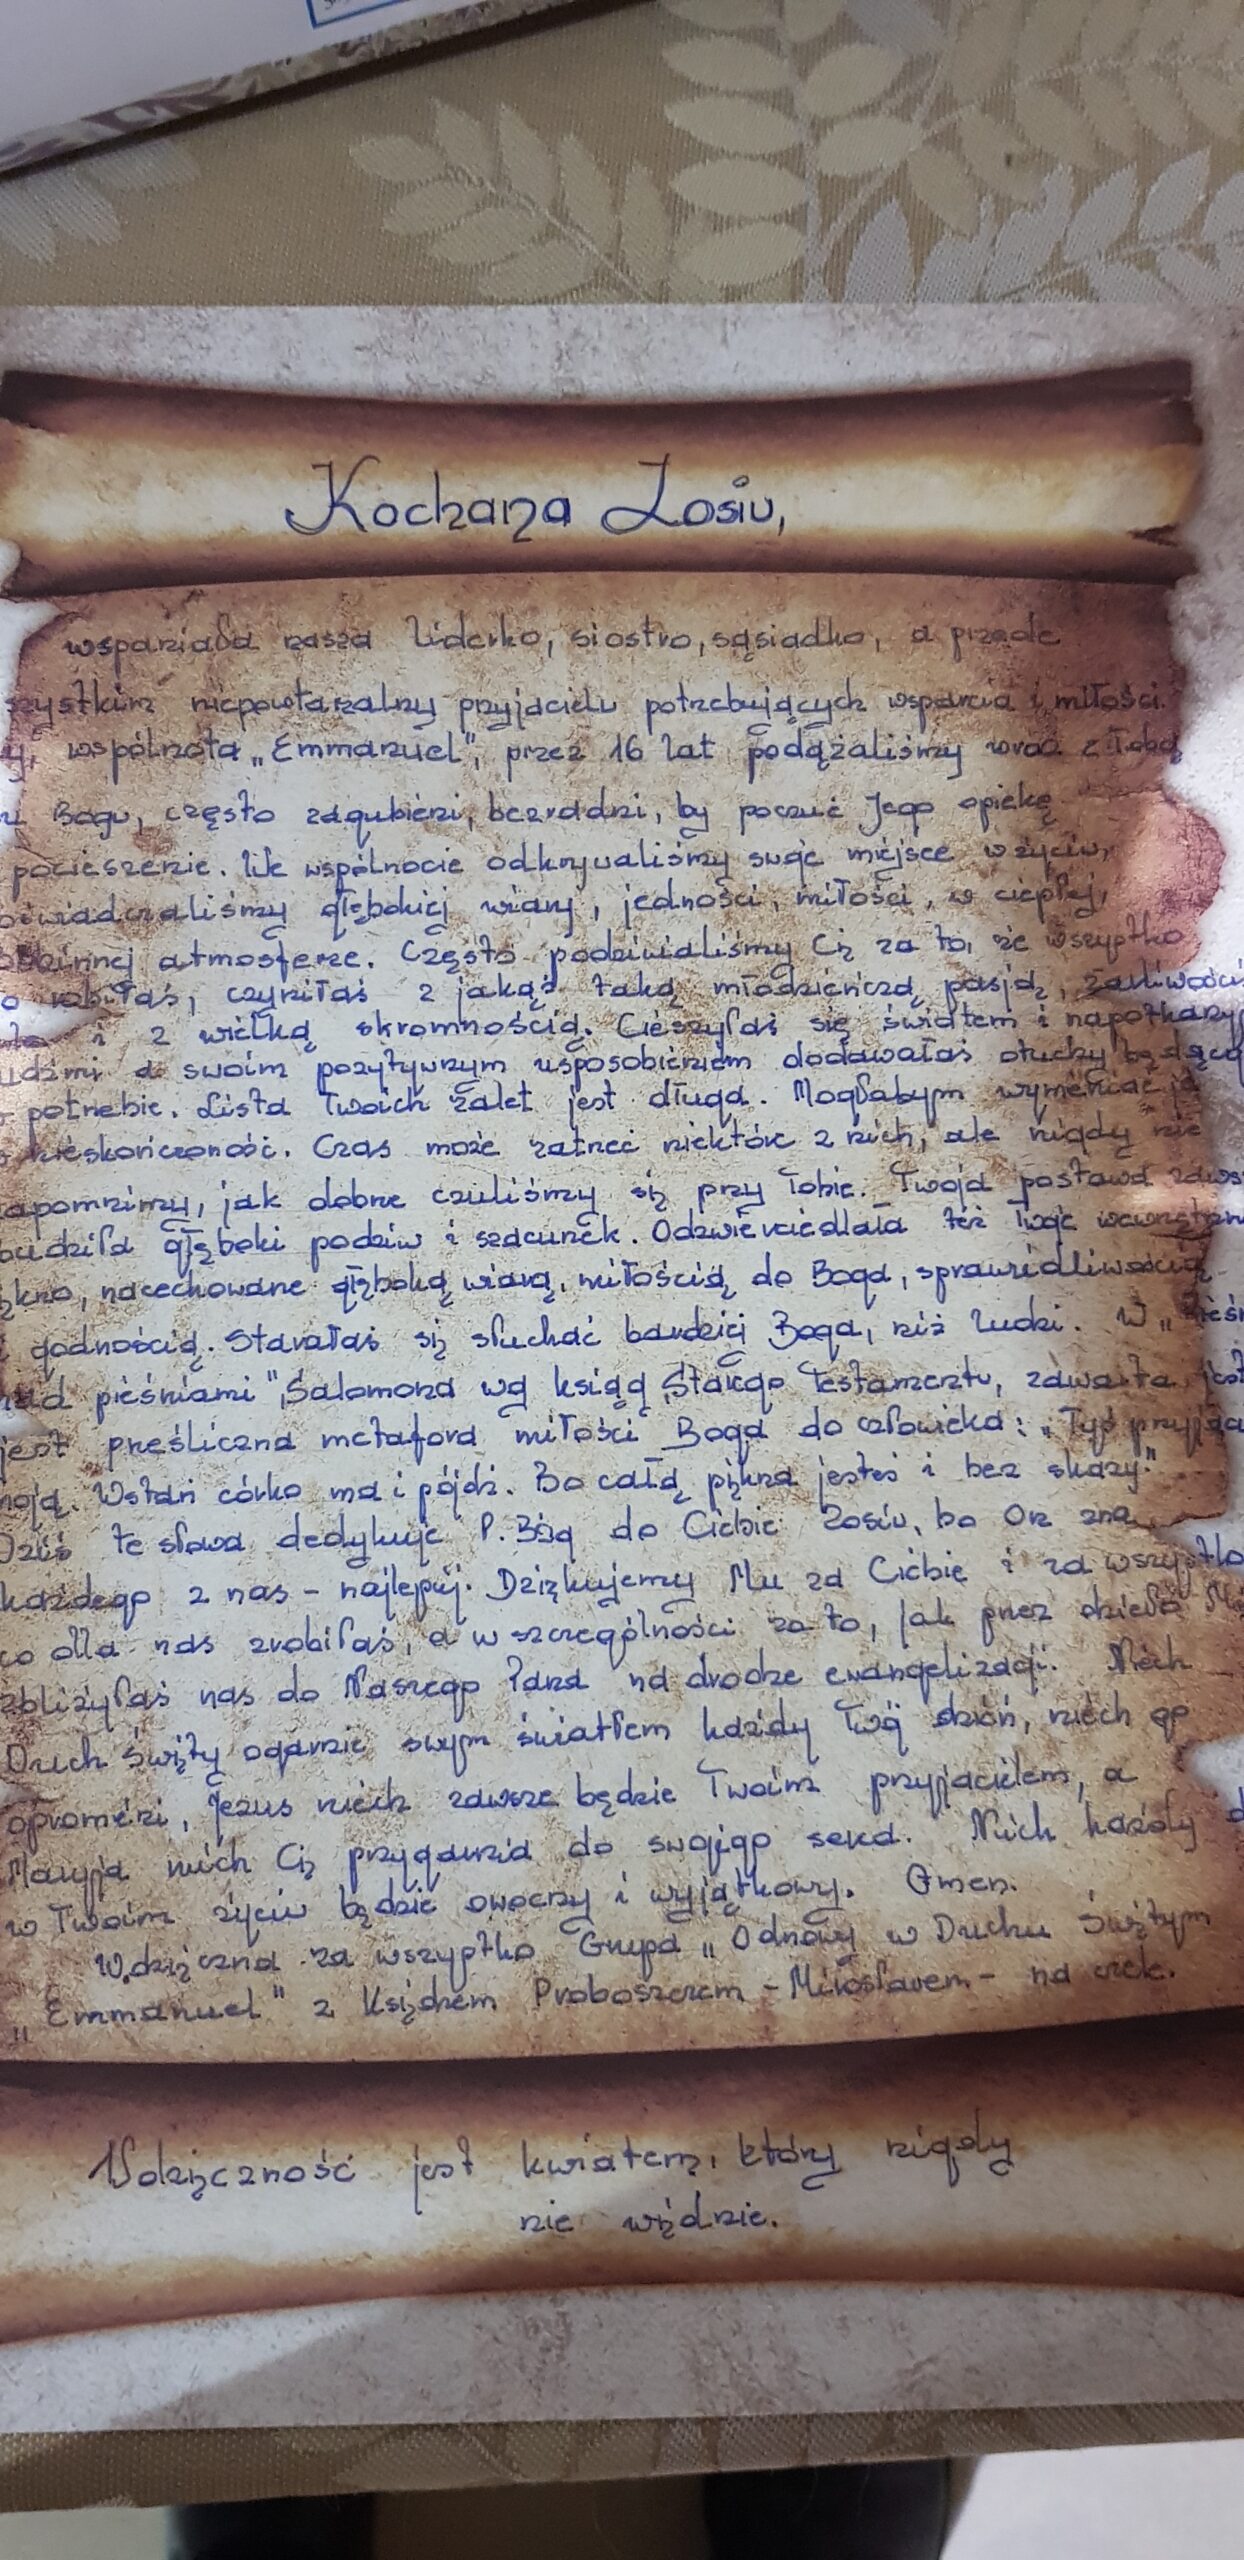 Kochana Zosiu,
wspaniała nasza liderko, siostro, sąsiadko, a przede
szystkim niepowtarzalny przyjacielu potrzebujących wsparcia i miłości.
y, wspólnota „Emmanuel", przez 16 lat podążaliśmy wraz z Tobą
u Bogu, często zagubieni, bezradni, by poczuć Jego opiekę
pocieszenie. We wspólnocie odkrywaliśmy swoje miejsce w życiu,
oświadczaliśmy głębokiej wiary, jedności, miłości, w ciepłej,
odzinnej atmosferze. Często podziwialiśmy Cię za to, że wszystko
o robiłaś, czyniłaś z jakąś taką młodzieńczą pasją, żarliwości
i z wielką skromnością. Cieszyłaś się światem i napotkany
udźmi a swoim pozytywnym usposobieniem dodawałaś otuchy będąc
potrzebie. Lista Twoich zalet jest długa. Mogłabym wymieniać ją
nieskończoność. Czas może zatrzeć niektóre z nich, ale nigdy nie
apomnimy, jak dobrze czuliśmy się przy Tobie. Twoja postawa zaws
budziła głęboki podziw i szacunek. Odzwierciedlała też Twoje wewnętrzn
ękno, nacechowane głęboką wiarą, miłością do Boga, sprawiedliwością
i godnością. Starałaś się słuchać bardziej Boga, niż ludzi. W „Pieśn
nad pieśniami" Salomona wg ksiąg Starego Testamentu, zawarta jest
jest prześliczna metafora miłości Boga do człowieka: „Tyś przyjac
moją. Wstań córko ma i pójdź. Bo całą piękna jesteś i bez skazy."
Dziś te słowa dedykuje P. Bóg do Ciebie Zosiu, bo On zna
każdego z nas - najlepiej. Dziękujemy Mu za Ciebie i za wszystko
co dla nas zrobiłaś, a w szczególności za to, jak przez dzieło Mi
zbliżyłaś nas do Naszego Pana na drodze ewangelizacji. Niech
Duch Święty ogarnie swym światłem każdy Twój dzień, niech go
opromieni, Jezus niech zawsze będzie Twoim przyjacielem, a
Maryja niech Cię przygarnia do swojego serca. Niech każdy d
w Twoim życiu będzie owocny i wyjątkowy. Amen.
Wdzięczna za wszystko Grupa „Odnowy w Duchu Świętym
„Emmanuel" z Księdzem Proboszczem - Mirosławem - na czele.
Wdzięczność jest kwiatem, który nigdy
nie więdnie.